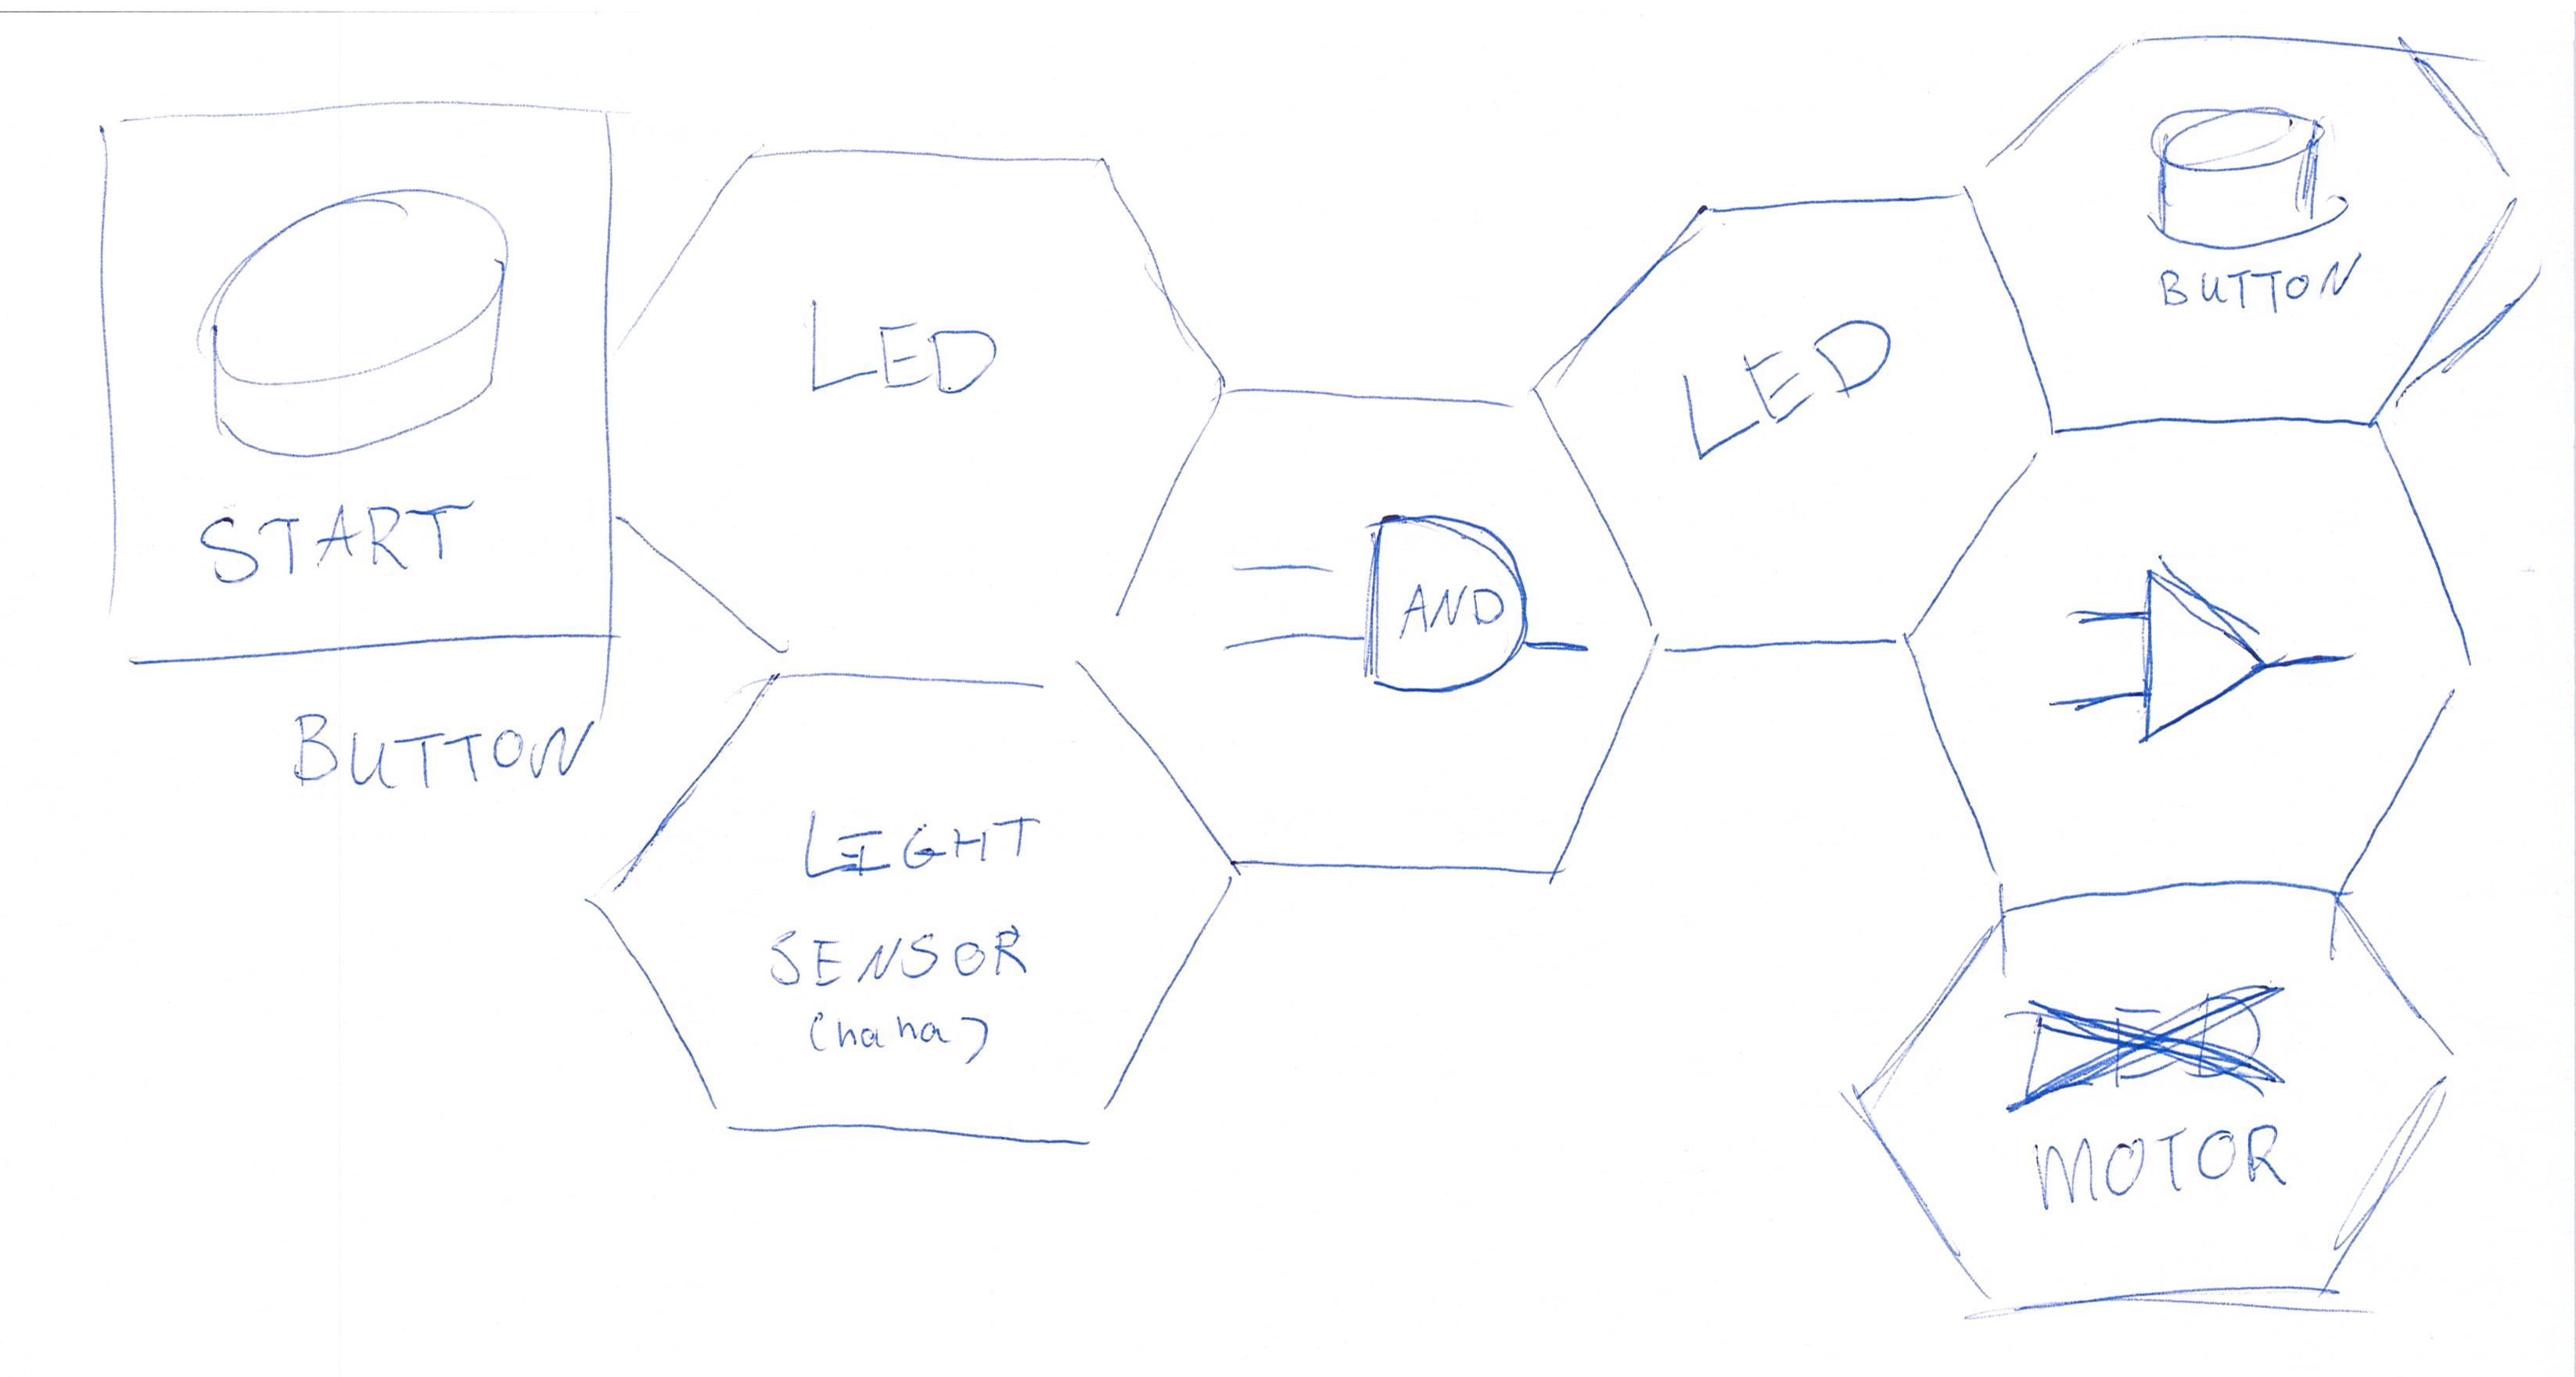 START
BUTTON
LED
LIGHT
SENSOR
(haha)
AND
LED
BUTTON
MOTOR